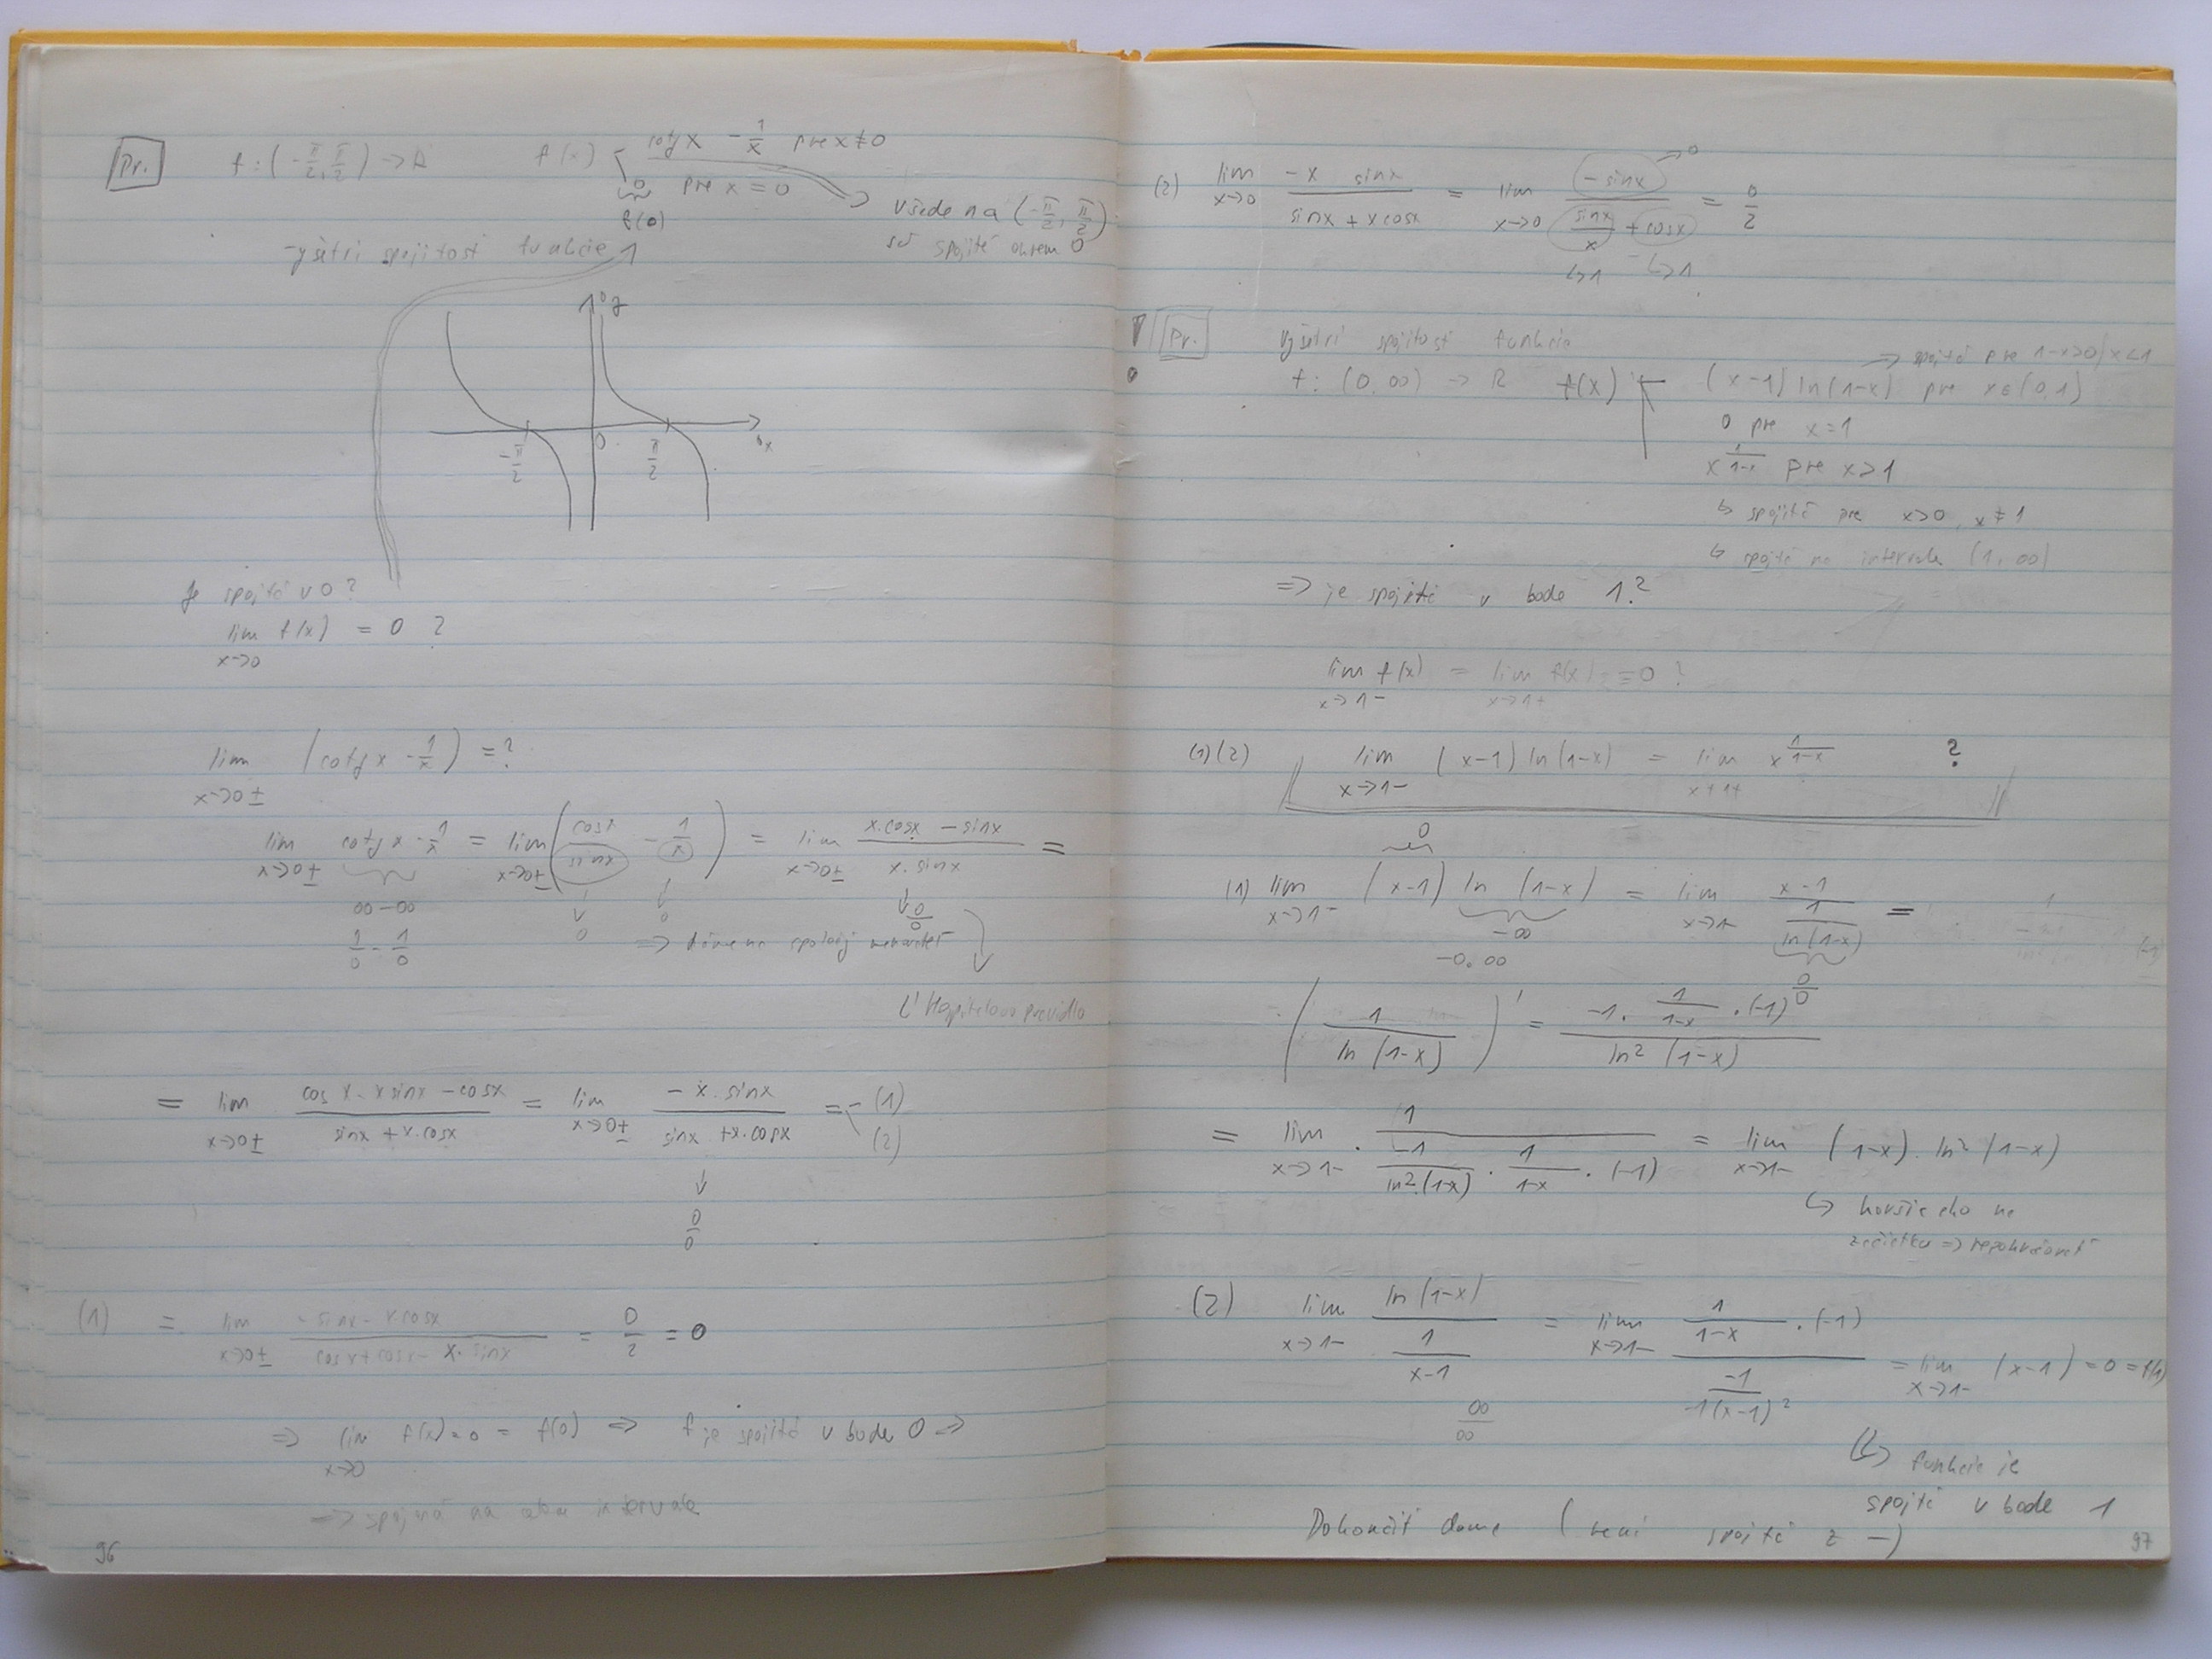 Pr. f: (-π/2, π/2) -> R f(x) cotg x - 1/x pre x≠0
0 pre x = 0
f(0)
všade na (-π/2, π/2)
sú spojité okrem 0
vyšetri spojitosť funkcie
y
-π/2 0 π/2 x
Je spojitá v 0?
lim x->0 f(x) = 0 ?
lim x->0± (cotg x - 1/x) = ?
lim x->0± cotg x - 1/x = lim x->0± (cosx/sinx - 1/x) = lim x->0± (x.cosx - sinx)/(x.sinx) =
∞-∞ 0 0 0/0
1/0 - 1/0 => dáme na spoločný menovateľ
L'Hopitalovo pravidlo
= lim x->0± (cos x - x sinx - cosx)/(sinx + x.cosx) = lim x->0± (-x.sinx)/(sinx + x.cosx) = (1)
(2)
0/0
(1) = lim x->0± (-sinx - x.cosx)/(cosx + cosx - x.sinx) = 0/2 = 0
=> lim x->0 f(x) = 0 = f(0) => f je spojitá v bode 0 =>
96
(2) lim x->0 (-x sinx)/(sinx + x cosx) = lim x->0 (-sinx)/(sinx/x + cosx) = 0/2
->0
↳1 ↳1
Pr. vyšetri spojitosť funkcie
=> spojitá pre 1-x>0/x<1
f: (0,∞) -> R f(x) (x-1) ln(1-x) pre x∈(0,1)
0 pre x=1
x^(1/(1-x)) pre x>1
↳ spojité pre x>0, x≠1
↳ spojitá na intervale (1,∞)
=> je spojité v bode 1?
lim x->1- f(x) = lim x->1+ f(x) = 0 ?
(1)(2) lim x->1- (x-1) ln(1-x) = lim x->1+ x^(1/(1-x)) ?
0
(1) lim x->1- (x-1) ln (1-x) = lim x->1- (x-1)/(1/ln(1-x)) =
-∞
-0.∞
0/0
(1/ln(1-x))' = (-1 . 1/(1-x) . (-1))/(ln² (1-x))
= lim x->1- 1/(-1/ln²(1-x) . 1/(1-x) . (-1)) = lim x->1- (1-x). ln²(1-x)
↳ horšie ako na
začiatku => nepokračovať
(2) lim x->1- ln(1-x)/(1/(x-1)) = lim x->1- (1/(1-x) . (-1))/(-1/(x-1)²) = lim x->1- (x-1) = 0 = f(1)
∞/∞
↳ funkcia je
spojitá v bode 1
Dokončiť doma ( není spojité z -)
97